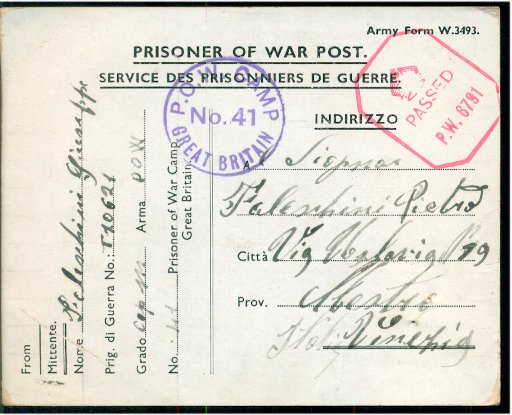 Army Form W.3493.
PRISONER OF WAR POST.
SERVICE DES PRISONNIERS DE GUERRE.
P.O.W. CAMP
No. 41
GREAT BRITAIN
PASSED
P.W. 6791
INDIRIZZO
Al Signor
Falenhini Pietro
Città Via
Prov. Mestre
Venezia
From
Mittente.
Nome Giuseppe
Prig. di Guerra No.:
Grado Arma POW
No. 41 Prisoner of War Camp
Great Britain